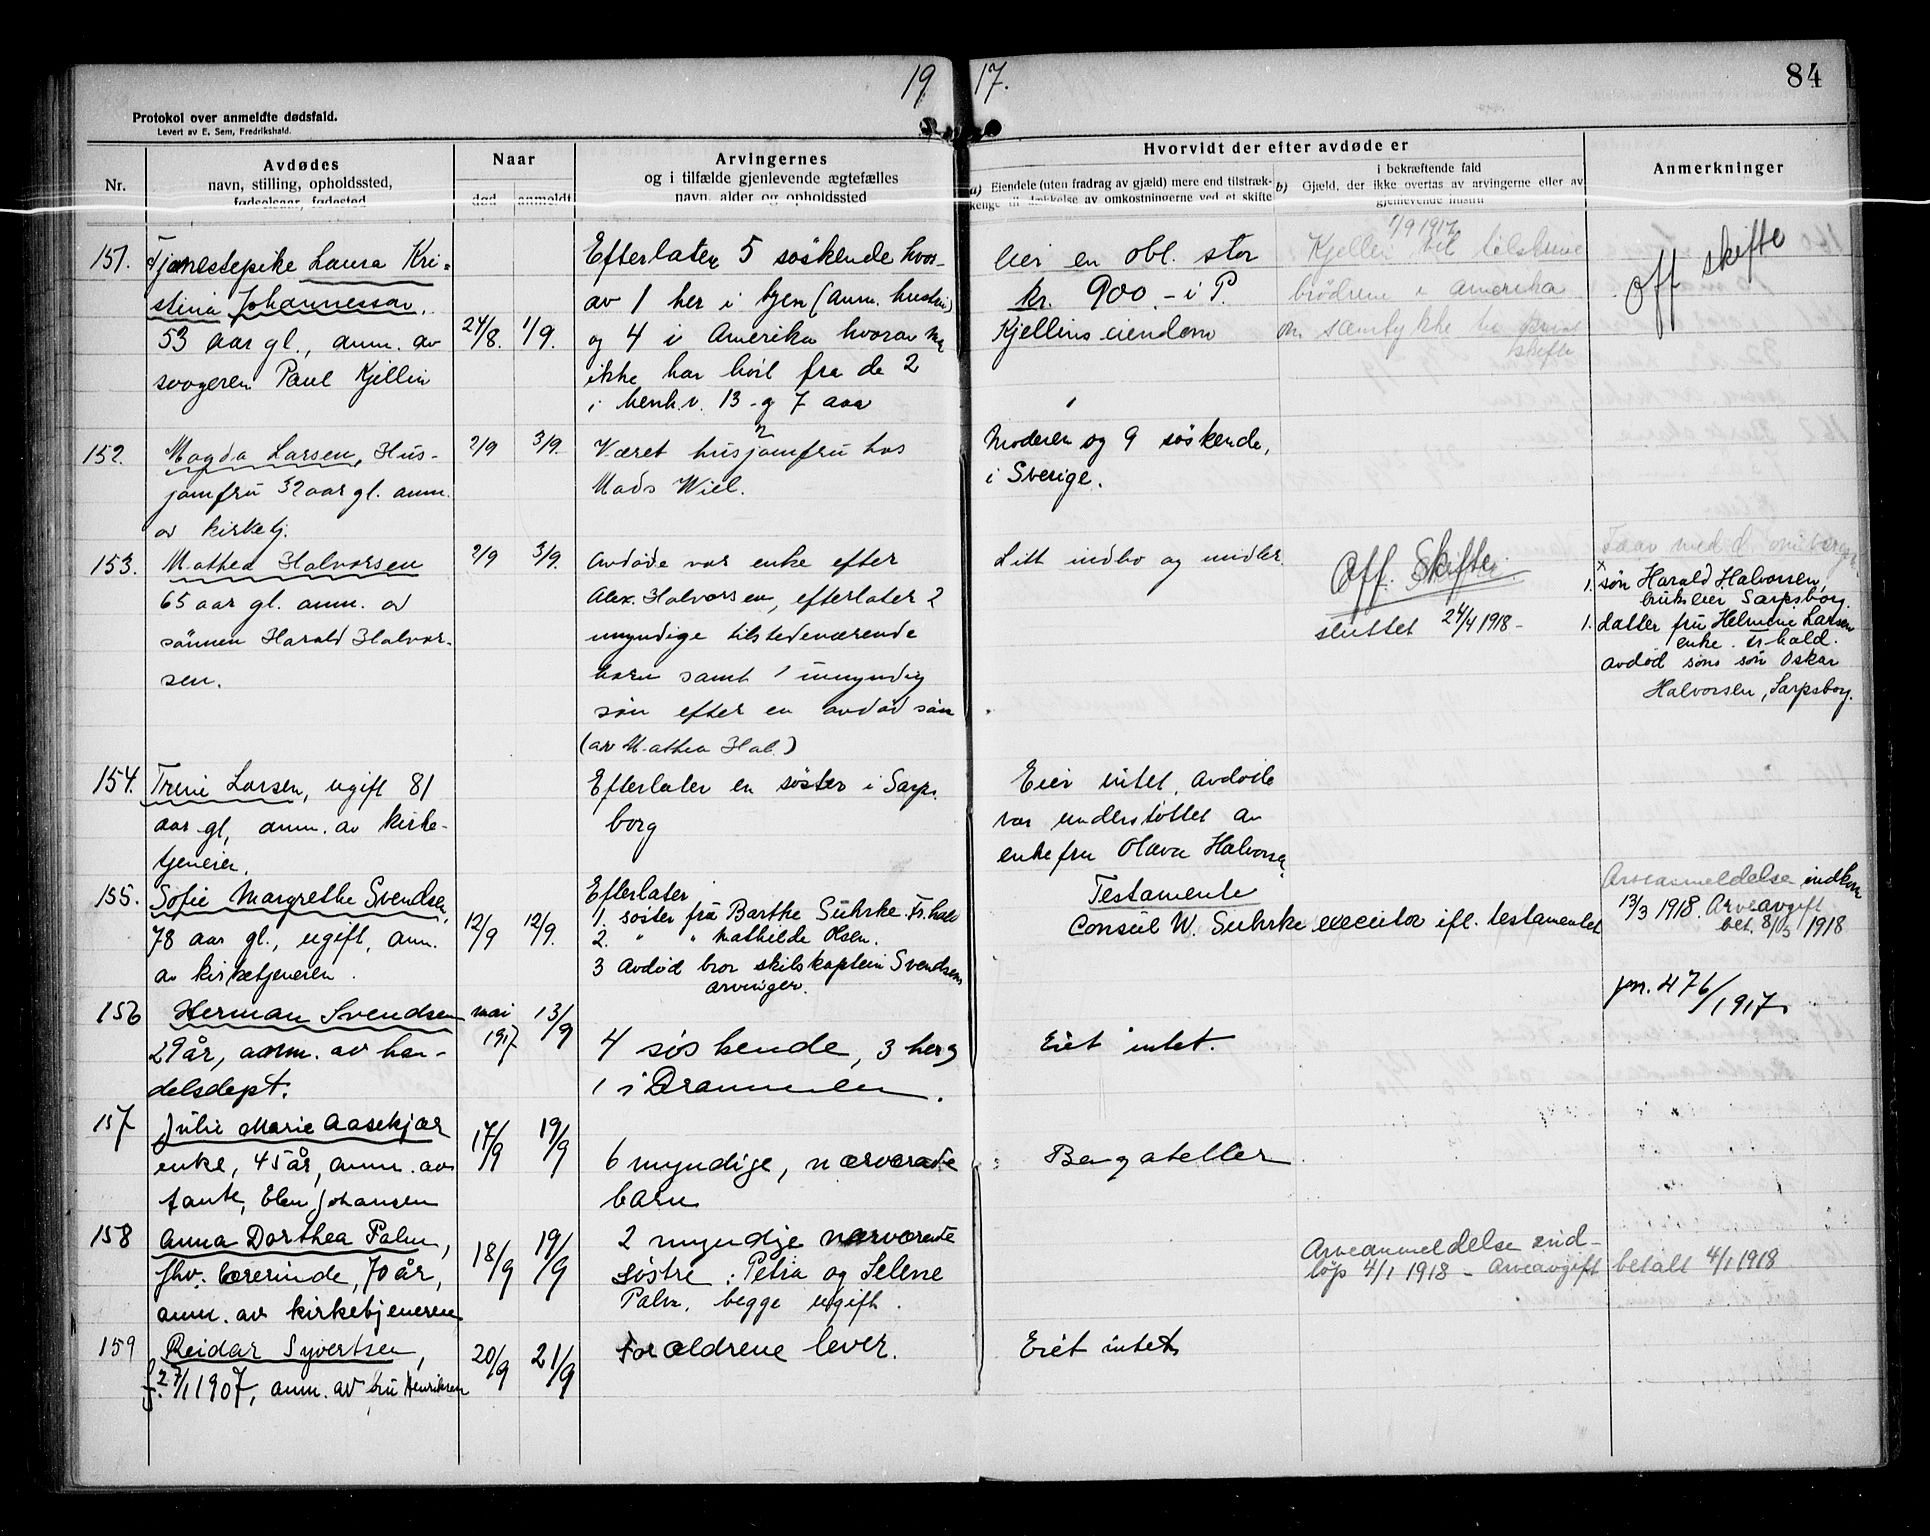 1917.
84
Protokol over anmeldte dødsfald.
Levert av E, Sem, Fredrikshald.
Nr.
Avdødes
navn, stilling, opholdssted,
fødselsaar, fødested
Naar
død
anmeldt
Arvingernes
og i tilfælde gjenlevende ægtefælles
navn, alder og opholdssted
Hvorvidt der efter avdøde er
a) Eiendele (uten fradrag av gjæld) mere end tilstræk-
kelige til dækkelse av omkostningerne ved et skifte
i bekræftende fald
b) Gjæld, der ikke overtas av arvingerne eller av
gjenlevende hustru
Anmerkninger
151.
Tjenestepike Laura Kri-
stina Johannessen,
53 aar gl., anm. av
svogeren Paul Kjellin
24/8.
1/9.
Efterlater 5 søskende hvor-
av 1 her i byen (anm. hustru)
og 4 i Amerika hvorav
ikke har hört fra de 2
i henh.v. 13 og 7 aar
Eier en obl. stor
kr. 900.- i P.
Kjellins eiendom
1/9 1917
Kjellin vil tilskrive
brödrene i Amerika
om samtykke til privat
skifte
Off skifte
152.
Magda Larsen, Hus-
jomfru 32 aar gl. anm.
av kirketj.
2/9
3/9.
Været husjomfru hos
Mads Wiel.
Moderen og 9 søskende,
i Sverige.
153.
Mathea Halvorsen
65 aar gl. anm. av
sönnen Harald Halvor-
sen.
2/9
3/9.
Avdøde var enke efter
Alex. Halvorsen, efterlater 2
myndige tilstedeværende
barn samt 1 umyndig
søn efter en avdød søn
(av Mathea Hal.)
Litt indbo og midler
Off. Skifte.
sluttet 24/4 1918-
1. søn Harald Halvorsen,
brukseier Sarpsborg.
1. datter fru Helmine Larsen
enke. Fr.hald.
avdød søns søn Oskar
Halvorsen, Sarpsborg.
154.
Trine Larsen, ugift 81
aar gl, anm. av kirke-
tjeneren.
Efterlater en søster i Sarps-
borg
Eier intet, avdøde
var understöttet av
enkefru Olava Halvorsen
155.
Sofie Margrethe Svendsen,
78 aar gl., ugift, anm.
av kirketjeneren.
12/9
12/9.
Efterlater
1. søster fru Barthe Suhrke Fr.hald
2. " " Mathilde Olsen.
3 Avdød bror skibskaptein Svendsens
arvinger.
Testamente
Consul W. Suhrke executor ifl. testamentet
Arveanmeldelse indkom
13/3 1918. Arveavgift
bet. 8/3 1918
jnr. 476/1917.
156
Herman Svendsen
29 år, anm. av han-
delsdept.
mai
1917
13/9
4 søskende, 3 her og
1 i Drammen.
Eiet intet.
157
Julie Marie Aasekjær
enke, 45 år, anm. av
tante, Elen Johansen
17/9
19/9
6 myndige, nærværende
barn
Bagateller
158
Anna Dorthea Palm,
fhv. lærerinde, 70 år,
anm. av kirketjeneren
18/9
19/9
2 myndige nærværende
søstre: Petra og Selene
Palm, begge ugift.
Arveanmeldelse ind-
løp 4/1 1918 - Arveavgift betalt 4/1 1918
159
Reidar Syvertsen,
f. 27/1 1907, anm. av fru Henriksen
20/9
21/9
Forældrene lever.
Eiet intet